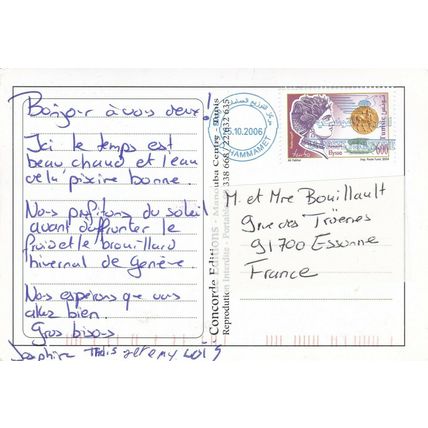 Bonjour à vous deux!
Ici le temps est
beau chaud et l'eau
de la piscine bonne.
Nous profitons du soleil
avant d'affronter le
froid et le brouillard
hivernal de Genève.
Nous espérons que vous
allez bien.
Gros bisous
Concorde Editions - Manouba Centre - Tunis
Reproduction Interdite - Portable
.10.2006
HAMMAMET
Tunis
تونس
Elyssa
600
M. et Mre Bouillault
9rue des Tröenes
91700 Essonne
France